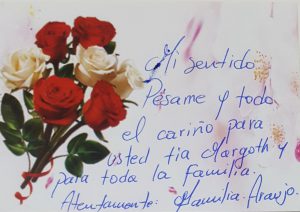 Mi sentido
Pésame y todo
el cariño para
usted tia Margoth y
para toda la familia.
Atentamente: Familia Araujo.